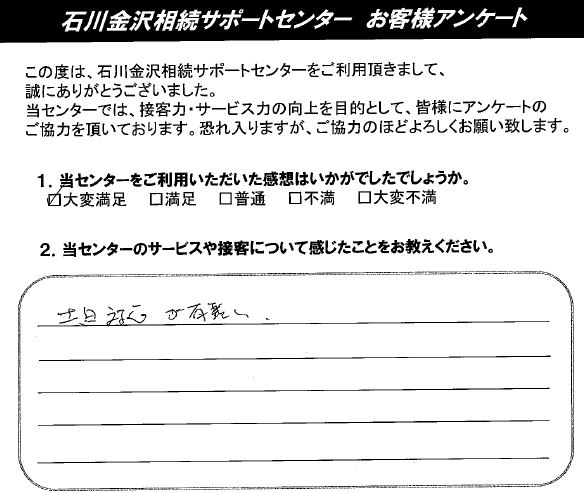 石川金沢相続サポートセンター お客様アンケート
この度は、石川金沢相続サポートセンターをご利用頂きまして、
誠にありがとうございました。
当センターでは、接客力・サービス力の向上を目的として、皆様にアンケートの
ご協力を頂いております。恐れ入りますが、ご協力のほどよろしくお願い致します。
1. 当センターをご利用いただいた感想はいかがでしたでしょうか。
☑大変満足 □満足 □普通 □不満 □大変不満
2. 当センターのサービスや接客について感じたことをお教えください。